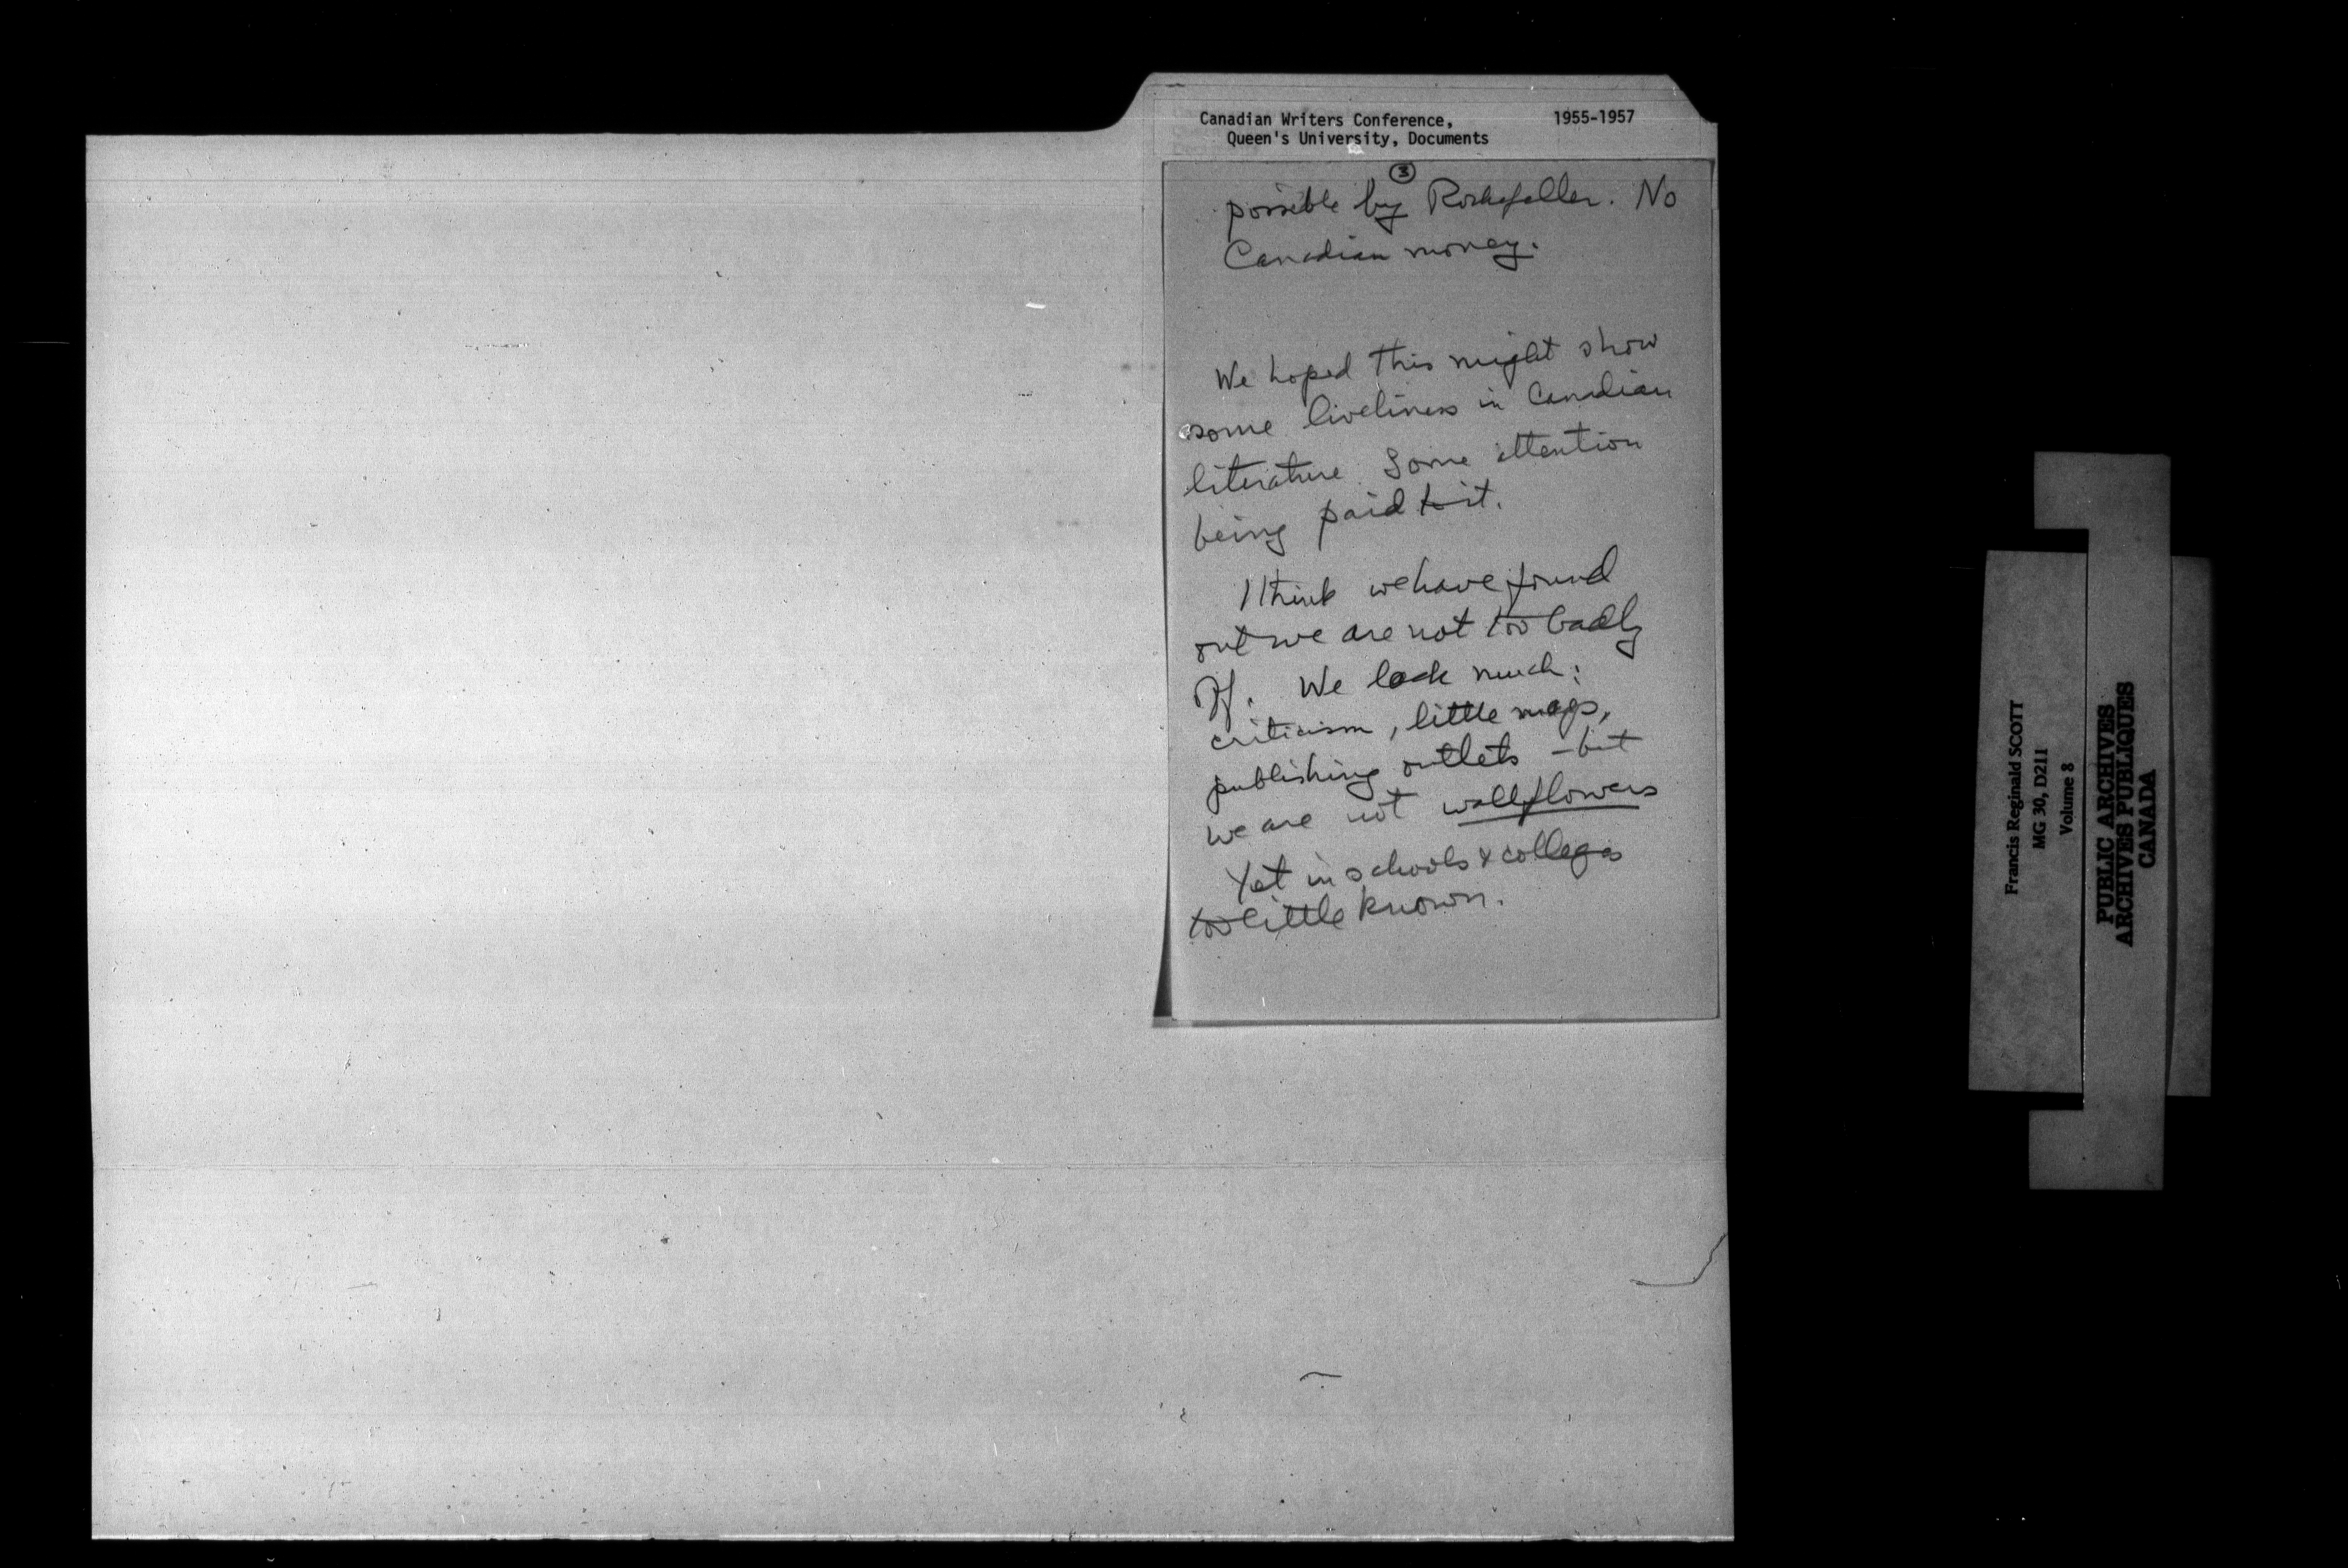 Canadian Writers Conference, 1955-1957
Queen's University, Documents
3
possible by Rockefeller. No
Canadian money.
We hoped this might show
some liveliness in Canadian
literature. Some attention
being paid to it.
I think we have found
out we are not too badly
off. We lack much:
criticism, little mags,
publishing outlets - but
we are not wallflowers
Yet in schools & colleges
too little known.
Francis Reginald SCOTT
MG 30, D211
Volume 8
PUBLIC ARCHIVES
ARCHIVES PUBLIQUES
CANADA